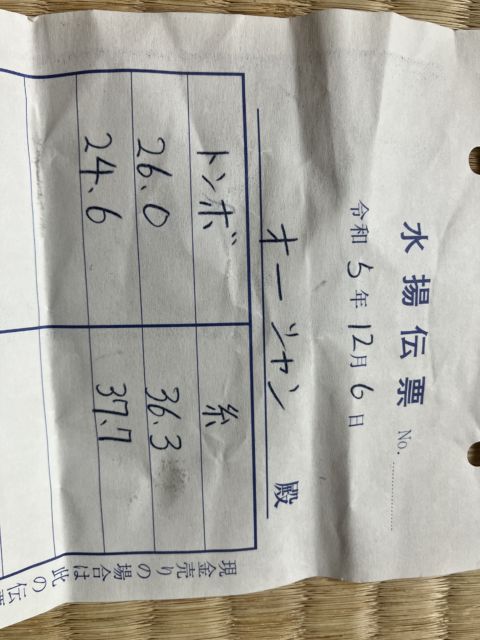 水揚伝票 No.
令和 5年 12月 6日
オーシャン 殿
トンボ 糸
26.0 36.3
24.6 37.7
現金売りの場合は此の伝票